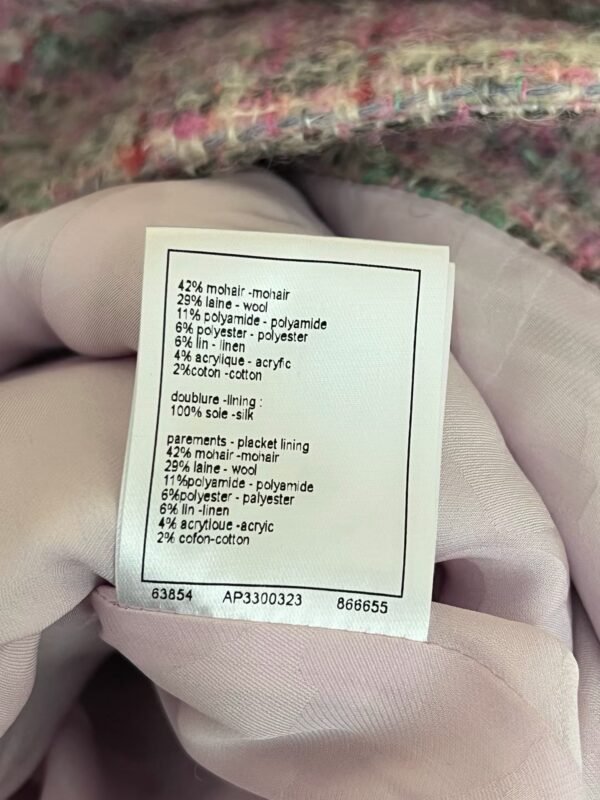 42% mohair -mohair
29% laine - wool
11% polyamide - polyamide
6% polyester - polyester
6% lin - linen
4% acrylique - acryfic
2%coton -cotton
doublure -lining :
100% soie -silk
parements - placket lining
42% mohair -mohair
29% laine - wool
11%polyamide - polyamide
6%polyester - palyester
6% lin -linen
4% acrytioue -acryic
2% cofon-cotton
63854 AP3300323 866655